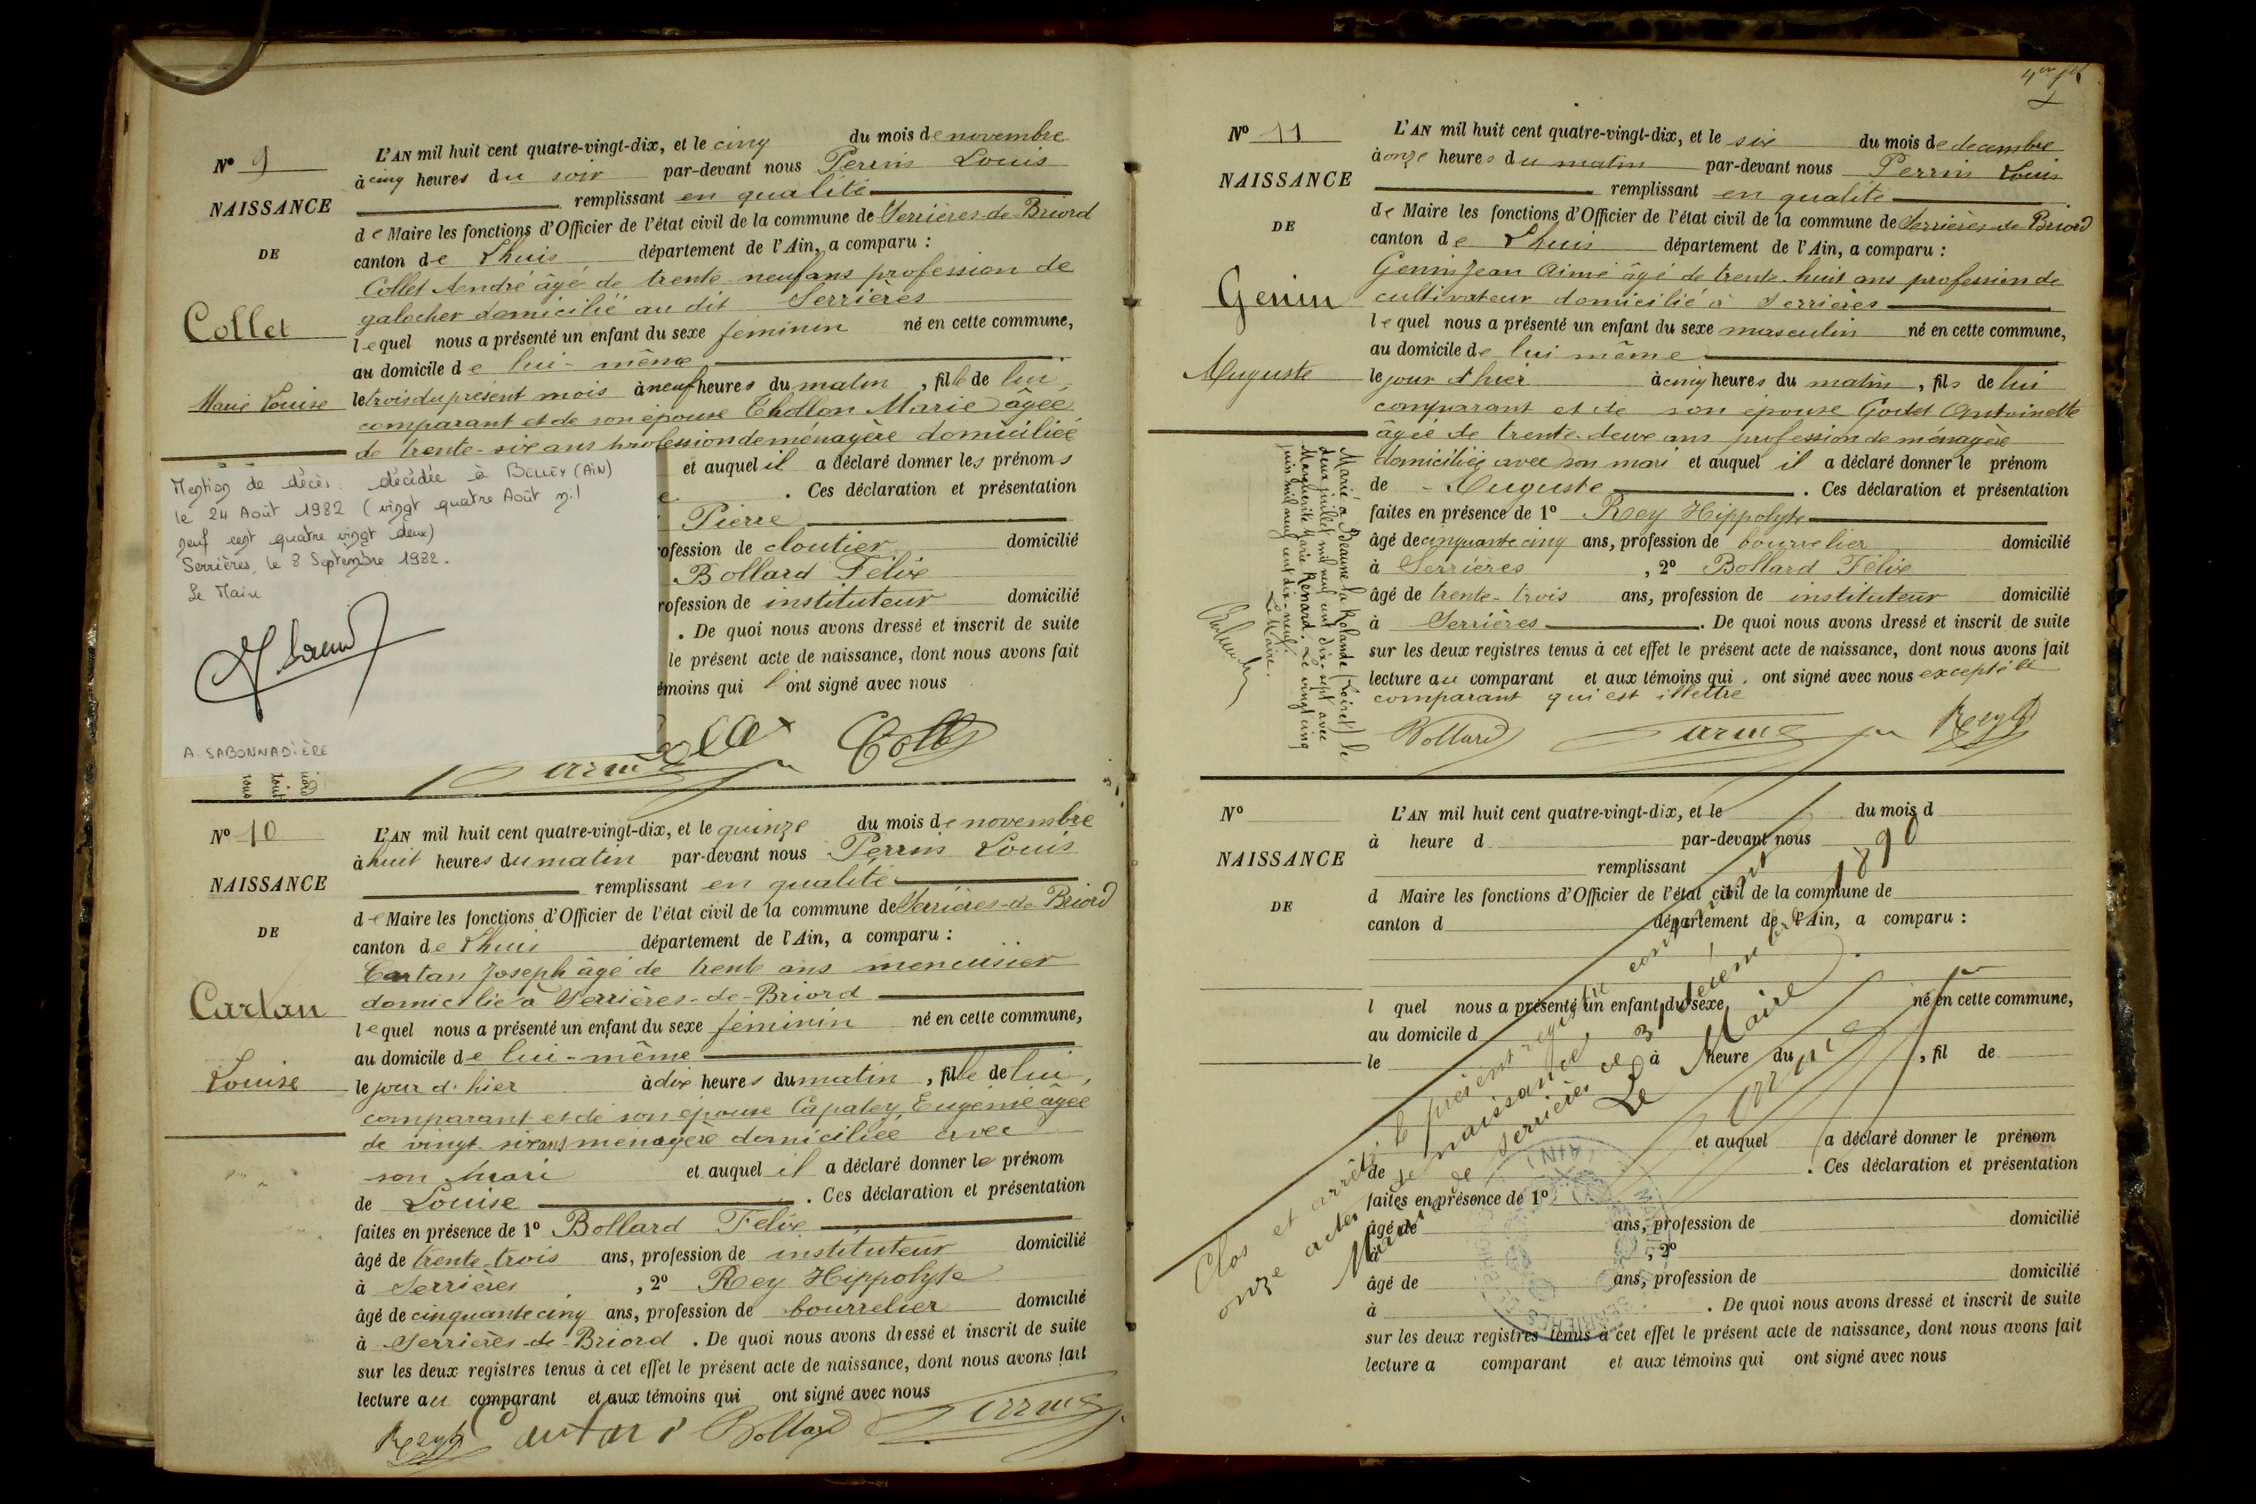 Nº 9
NAISSANCE
DE
Collet
Marie Louise
L'AN mil huit cent quatre-vingt-dix, et le cinq du mois de novembre
à cinq heures du soir par-devant nous Perrin Louis
remplissant en qualité
de Maire les fonctions d'Officier de l'état civil de la commune de Serrières-de-Briord
canton de Lhuis département de l'Ain, a comparu :
Collet André âgé de trente-neuf ans profession de
galocher domicilié au dit Serrières
lequel nous a présenté un enfant du sexe féminin né en cette commune,
au domicile de lui-même
le trois du présent mois à neuf heures du matin, fille de lui
comparant et de son épouse Thollon Marie âgée
de trente-six ans profession de ménagère domiciliée
Mention de décès : décédée à BELLEY (AIN)
le 24 Août 1982 (vingt quatre Août mil
neuf cent quatre vingt deux)
Serrières, le 8 Septembre 1982.
Le Maire
A. SABONNADIÈRE
et auquel il a déclaré donner les prénoms
. Ces déclaration et présentation
Pierre
ofession de cloutier domicilié
Bollard Félix
rofession de instituteur domicilié
. De quoi nous avons dressé et inscrit de suite
le présent acte de naissance, dont nous avons fait
émoins qui l'ont signé avec nous
Collet
Nº 10
NAISSANCE
DE
Cartan
Louise
L'AN mil huit cent quatre-vingt-dix, et le quinze du mois de novembre
à huit heures du matin par-devant nous Perrin Louis
remplissant en qualité
de Maire les fonctions d'Officier de l'état civil de la commune de Serrières-de-Briord
canton de Lhuis département de l'Ain, a comparu :
Cartan Joseph âgé de trente ans menuisier
domicilié à Serrières-de-Briord
lequel nous a présenté un enfant du sexe féminin né en cette commune,
au domicile de lui-même
le jour d'hier à dix heures du matin, fille de lui,
comparant et de son épouse Capatey Eugénie âgée
de vingt-six ans ménagère domiciliée avec
son mari et auquel il a déclaré donner le prénom
de Louise . Ces déclaration et présentation
faites en présence de 1º Bollard Félix
âgé de trente-trois ans, profession de instituteur domicilié
à Serrières, 2º Rey Hippolyte
âgé de cinquante cinq ans, profession de bourrelier domicilié
à Serrières-de-Briord . De quoi nous avons dressé et inscrit de suite
sur les deux registres tenus à cet effet le présent acte de naissance, dont nous avons fait
lecture au comparant et aux témoins qui ont signé avec nous
Rey h Cartan j Bollard Perrin
Nº 11
NAISSANCE
DE
Genin
Auguste
L'AN mil huit cent quatre-vingt-dix, et le six du mois de decembre
à onze heures du matin par-devant nous Perrin Louis
remplissant en qualité
de Maire les fonctions d'Officier de l'état civil de la commune de Serrières-de-Briord
canton de Lhuis département de l'Ain, a comparu :
Genin Jean Aimé âgé de trente-huit ans profession de
cultivateur domicilié à Serrières
lequel nous a présenté un enfant du sexe masculin né en cette commune,
au domicile de lui même
le jour d'hier à cinq heures du matin, fils de lui
comparant et de son épouse Godet Antoinette
âgée de trente-deux ans profession de ménagère
domiciliée avec son mari et auquel il a déclaré donner le prénom
de Auguste . Ces déclaration et présentation
faites en présence de 1º Rey Hippolyte
âgé de cinquante cinq ans, profession de bourrelier domicilié
à Serrières, 2º Bollard Félix
âgé de trente-trois ans, profession de instituteur domicilié
à Serrières . De quoi nous avons dressé et inscrit de suite
sur les deux registres tenus à cet effet le présent acte de naissance, dont nous avons fait
lecture au comparant et aux témoins qui ont signé avec nous excepté le
comparant qui est illettré
Bollard Perrin Rey h
Marié à Beaune la Rolande (Loiret) le
deux juillet mil neuf cent dix-sept avec
Marguerite Marie Renard. Le vingt cinq
juin mil neuf cent dix-neuf.
Le Maire.
Nº
NAISSANCE
DE
L'AN mil huit cent quatre-vingt-dix, et le du mois d
à heure d par-devant nous
remplissant
d Maire les fonctions d'Officier de l'état civil de la commune de
canton d département de l'Ain, a comparu :
l quel nous a présenté un enfant du sexe né en cette commune,
au domicile d
le à heure du , fil de
et auquel a déclaré donner le prénom
de . Ces déclaration et présentation
faites en présence de 1º
âgé de ans, profession de domicilié
à , 2º
âgé de ans, profession de domicilié
à . De quoi nous avons dressé et inscrit de suite
sur les deux registres tenus à cet effet le présent acte de naissance, dont nous avons fait
lecture a comparant et aux témoins qui ont signé avec nous
Clos et arrêté le présent registre contenant
onze actes de naissance,
Mairie de Serrières ce 31 décembre 1890
Le Maire
Perrin